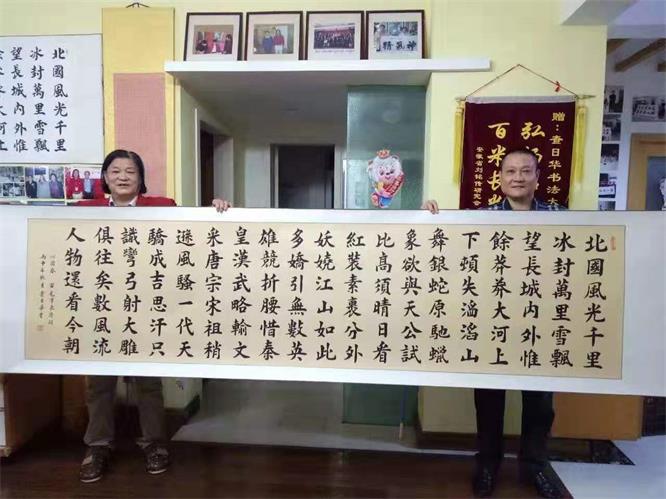 北國風光千里
冰封萬里雪飄
望長城內外惟
餘莽莽大河上
下頓失滔滔山
舞銀蛇原馳蠟
象欲與天公試
比高須晴日看
紅裝素裹分外
妖嬈江山如此
多嬌引無數英
雄競折腰惜秦
皇漢武略輸文
采唐宗宋祖稍
遜風騷一代天
驕成吉思汗只
識彎弓射大雕
俱往矣數風流
人物還看今朝
贈：查日华书法大
弘
百米长
安徽省刘铭传研究会
精氣神
北國風光千里
冰封萬里雪飄
望長城內外惟